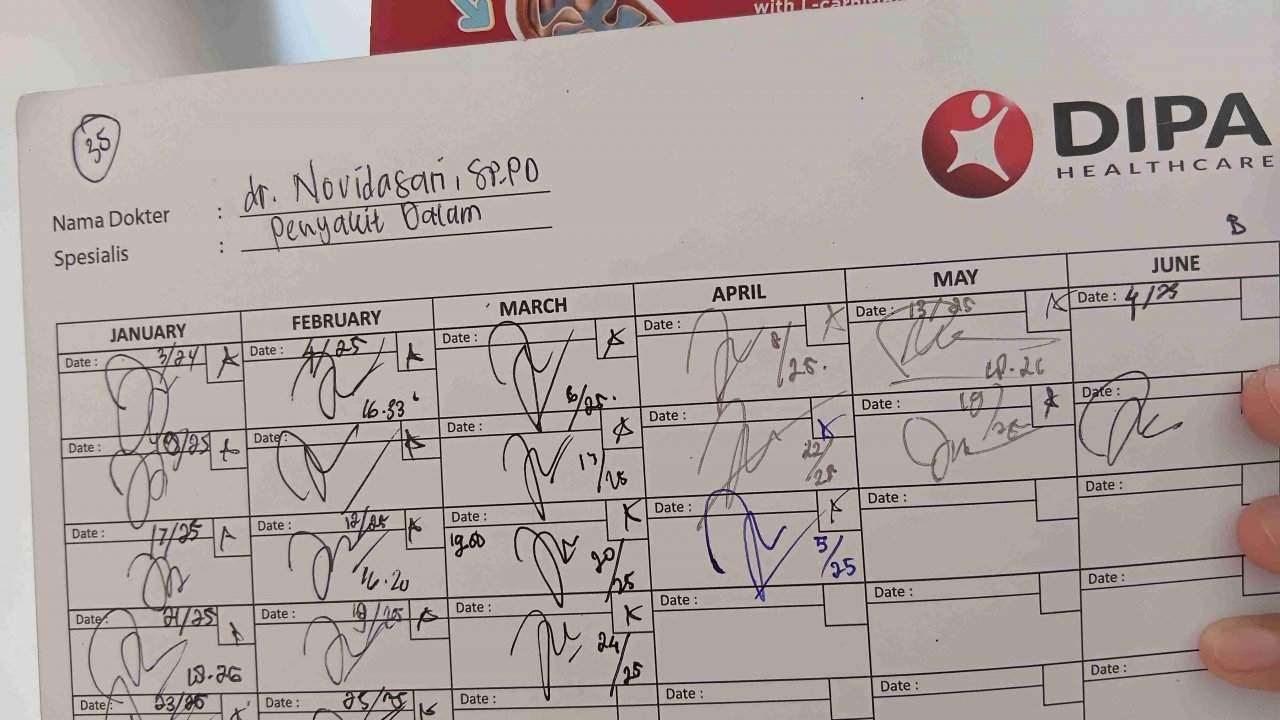 with L-carniti
35
DIPA
HEALTHCARE
Nama Dokter : dr. Novidasari, SP.PD
Spesialis : Penyakit Dalam
B
JANUARY FEBRUARY MARCH APRIL MAY JUNE
Date : 3/24 A Date : 4/25 A Date : A Date : A Date : 13/25 A Date : 4/25
16.33 6/25. 8/25. 18.26
Date : A Date : A Date : A Date : A Date : 19/25 A Date :
17/25 22/25
Date : 17/25 A Date : 12/25 A Date : K Date : A Date : Date :
16.20 19.00 20/25 5/25
Date : 21/25 A Date : 19/25 A Date : K Date : Date : Date :
18.26 24/25
Date : 23/25 Date : 25/25 K Date : Date : Date : Date :